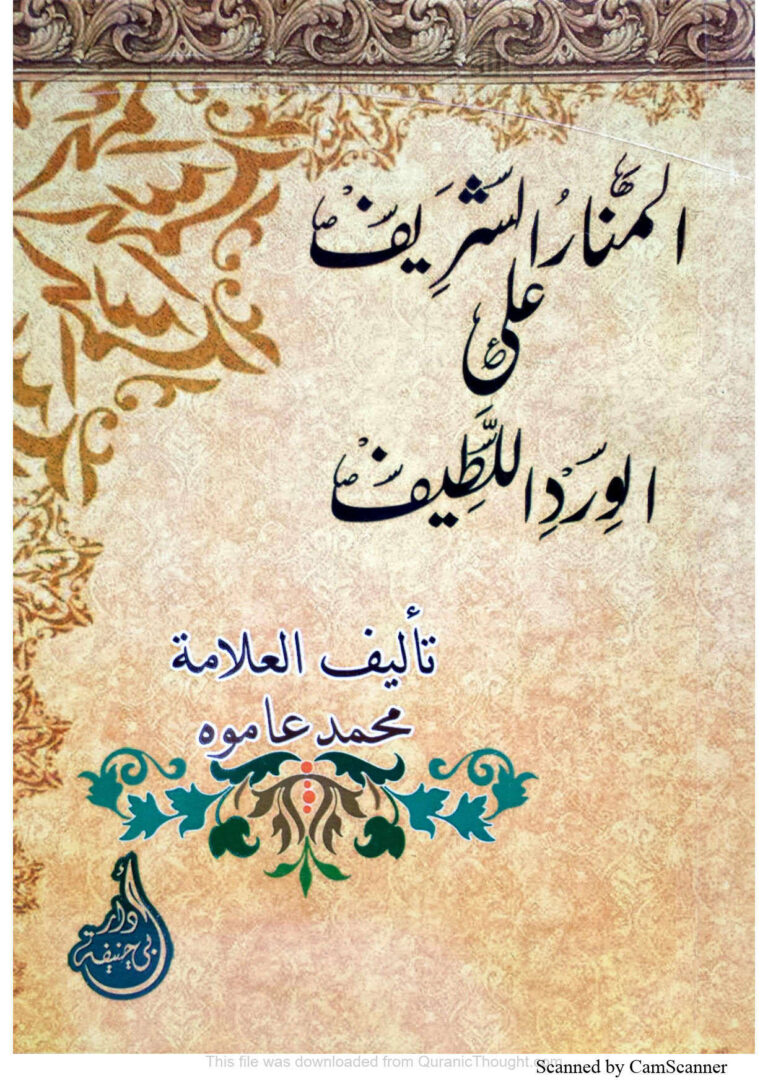 المنارُ الشَّرِيف
على
الوِردِ اللَّطِيف
تأليف العلامة
محمد عاموه
دار
أبي حنيفة
This file was downloaded from QuranicThought.com
Scanned by CamScanner